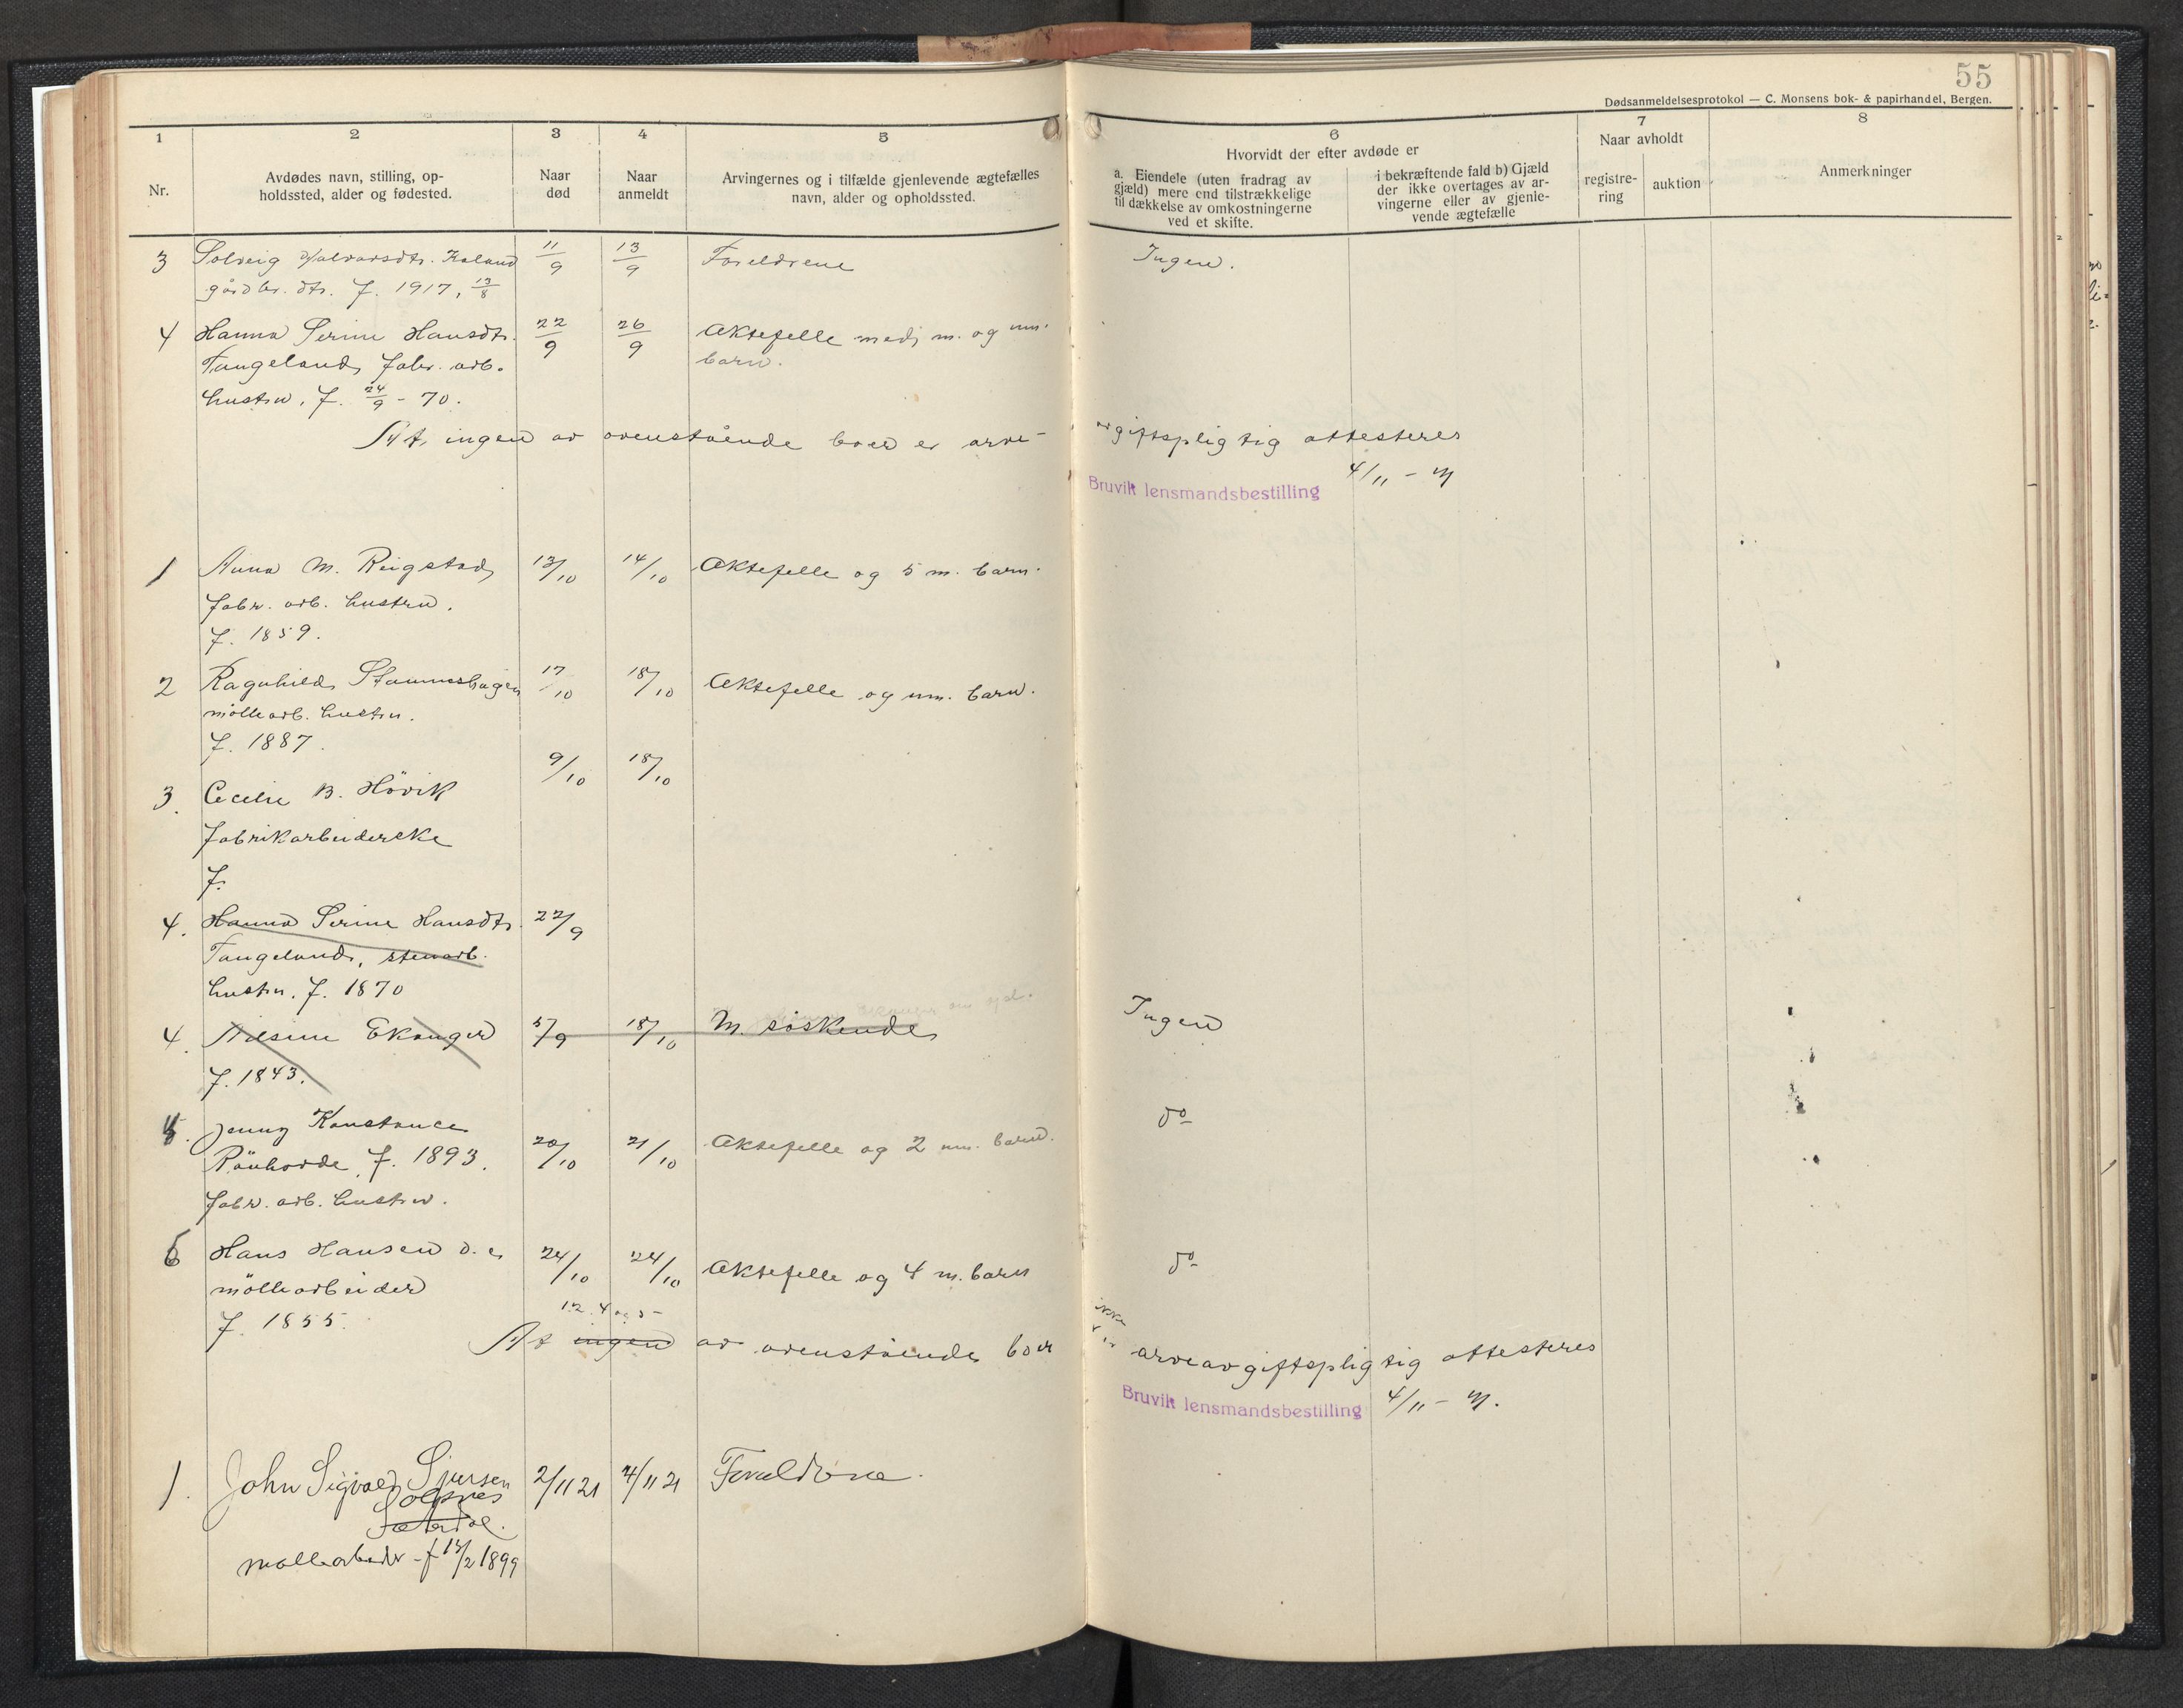 55
Dødsanmeldelsesprotokol — C. Monsens bok- & papirhandel, Bergen.
1 2 3 4 5 6 7 8
Nr.
Avdødes navn, stilling, op-
holdssted, alder og fødested.
Naar
død
Naar
anmeldt
Arvingernes og i tilfælde gjenlevende ægtefælles
navn, alder og opholdssted.
Hvorvidt der efter avdøde er
a. Eiendele (uten fradrag av
gjæld) mere end tilstrækkelige
til dækkelse av omkostningerne
ved et skifte.
i bekræftende fald b) Gjæld
der ikke overtages av ar-
vingerne eller av gjenle-
vende ægtefælle
Naar avholdt
registre-
ring
auktion
Anmerkninger
3 Solveig Halvorsdtr. Kaland 11/9 13/9 Foreldrene Ingen.
gårdbr. dtr. f. 1917, 13/8
4 Hanna Serine Hansdtr. 22/9 26/9 Aktefelle med m. og um.
Tangeland, fabr. arb. barn.
hustru, f. 24/9 - 70.
At ingen av ovenstående boer er arve-
avgiftspligtig attesteres
4/11 - M
Bruvik lensmandsbestilling
1 Anna M. Ringstad, 13/10 14/10 Aktefelle og 5 m. barn.
fabr. arb. hustru.
f. 1859.
2 Ragnhild Stammeshagen 17/10 18/10 Aktefelle og um. barn.
möllearb. hustru.
f. 1887.
9/10 18/10
3. Cecilie B. Hövik
fabrikarbeiderske
f.
4. Hanna Serine Hansdtr. 22/9
Tangeland, stenarb.
hustru. f. 1870
4. Nilsine Ekanger 5/9 18/10 M. söskende Ingen
f. 1843.
Jenny Konstance do
Rönhovde, f. 1893. 20/10 21/10 Aktefelle og 2 um. barn.
fabr. arb. hustru.
6 Hans Hansen d. e. 24/10 24/10 Aktefelle og 4 m. barn do
möllearbeider
f. 1855.
1. 2. 4 og 5 -
ikke
At ingen av ovenstående boer er arveavgiftspligtig attesteres
Bruvik lensmandsbestilling 4/11 - M.
1. John Sigvald Sjursen 2/11 21 4/11 21 Foreldrene.
møllearbeider - f 15/2 1899